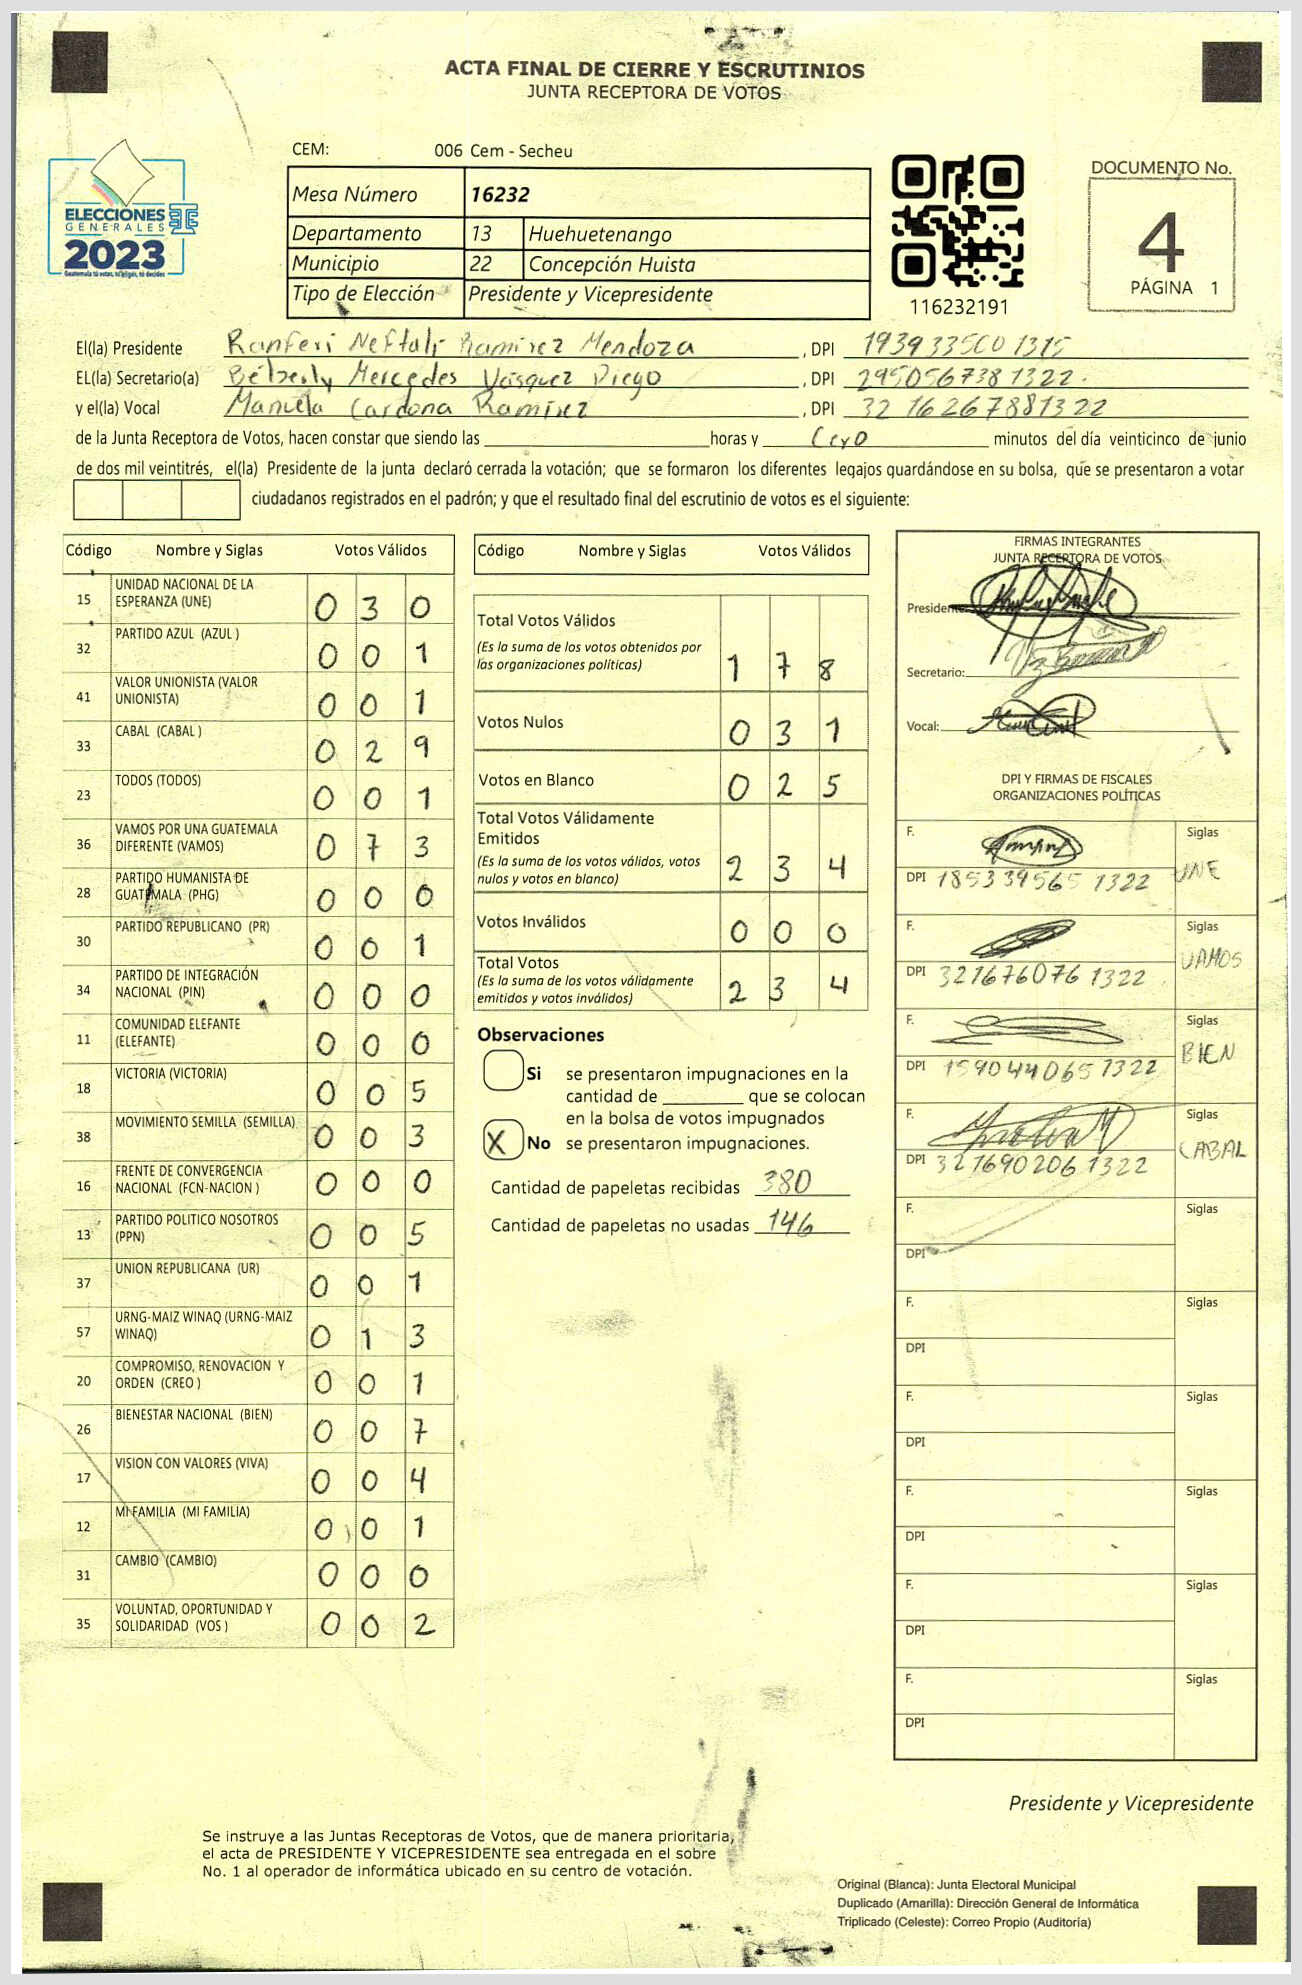 ACTA FINAL DE CIERRE Y ESCRUTINIOS
JUNTA RECEPTORA DE VOTOS
ELECCIONES
GENERALES
2023
Guatemala tú votas, tú eliges, tú decides
CEM: 006 Cem - Secheu
Mesa Número 16232
Departamento 13 Huehuetenango
Municipio 22 Concepción Huista
Tipo de Elección Presidente y Vicepresidente
116232191
DOCUMENTO No.
4
PÁGINA 1
El(la) Presidente Ranferi Neftalí Ramírez Mendoza , DPI 193933500 1315
EL(la) Secretario(a) Bélberly Mercedes Vásquez Diego , DPI 295056738 1322.
y el(la) Vocal Manuela Cardona Ramírez , DPI 32 1626788 1322
de la Junta Receptora de Votos, hacen constar que siendo las horas y Cero minutos del día veinticinco de junio
de dos mil veintitrés, el(la) Presidente de la junta declaró cerrada la votación; que se formaron los diferentes legajos guardándose en su bolsa, que se presentaron a votar
ciudadanos registrados en el padrón; y que el resultado final del escrutinio de votos es el siguiente:
Código Nombre y Siglas Votos Válidos
15 UNIDAD NACIONAL DE LA
ESPERANZA (UNE) 0 3 0
32 PARTIDO AZUL (AZUL ) 0 0 1
41 VALOR UNIONISTA (VALOR
UNIONISTA) 0 0 1
33 CABAL (CABAL ) 0 2 9
23 TODOS (TODOS) 0 0 1
36 VAMOS POR UNA GUATEMALA
DIFERENTE (VAMOS) 0 7 3
28 PARTIDO HUMANISTA DE
GUATEMALA (PHG) 0 0 0
30 PARTIDO REPUBLICANO (PR) 0 0 1
34 PARTIDO DE INTEGRACIÓN
NACIONAL (PIN) 0 0 0
11 COMUNIDAD ELEFANTE
(ELEFANTE) 0 0 0
18 VICTORIA (VICTORIA) 0 0 5
38 MOVIMIENTO SEMILLA (SEMILLA) 0 0 3
16 FRENTE DE CONVERGENCIA
NACIONAL (FCN-NACION ) 0 0 0
13 PARTIDO POLITICO NOSOTROS
(PPN) 0 0 5
37 UNION REPUBLICANA (UR) 0 0 1
57 URNG-MAIZ WINAQ (URNG-MAIZ
WINAQ) 0 1 3
20 COMPROMISO, RENOVACION Y
ORDEN (CREO ) 0 0 1
26 BIENESTAR NACIONAL (BIEN) 0 0 7
17 VISION CON VALORES (VIVA) 0 0 4
12 MI FAMILIA (MI FAMILIA) 0 0 1
31 CAMBIO (CAMBIO) 0 0 0
35 VOLUNTAD, OPORTUNIDAD Y
SOLIDARIDAD (VOS ) 0 0 2
Código Nombre y Siglas Votos Válidos
Total Votos Válidos
(Es la suma de los votos obtenidos por
las organizaciones políticas) 1 7 8
Votos Nulos 0 3 1
Votos en Blanco 0 2 5
Total Votos Válidamente
Emitidos
(Es la suma de los votos válidos, votos
nulos y votos en blanco) 2 3 4
Votos Inválidos 0 0 0
Total Votos
(Es la suma de los votos válidamente
emitidos y votos inválidos) 2 3 4
Observaciones
Si se presentaron impugnaciones en la
cantidad de ________ que se colocan
en la bolsa de votos impugnados
X No se presentaron impugnaciones.
Cantidad de papeletas recibidas 380
Cantidad de papeletas no usadas 146
FIRMAS INTEGRANTES
JUNTA RECEPTORA DE VOTOS
Presidente:
Secretario:
Vocal:
DPI Y FIRMAS DE FISCALES
ORGANIZACIONES POLÍTICAS
F. Siglas
DPI 185339565 1322 UNE
F. Siglas
DPI 321676076 1322 VAMOS
F. Siglas
DPI 159044065 1322 BIEN
F. Siglas
DPI 321690206 1322 CABAL
F. Siglas
DPI
F. Siglas
DPI
F. Siglas
DPI
F. Siglas
DPI
F. Siglas
DPI
F. Siglas
DPI
Presidente y Vicepresidente
Se instruye a las Juntas Receptoras de Votos, que de manera prioritaria,
el acta de PRESIDENTE Y VICEPRESIDENTE sea entregada en el sobre
No. 1 al operador de informática ubicado en su centro de votación.
Original (Blanca): Junta Electoral Municipal
Duplicado (Amarilla): Dirección General de Informática
Triplicado (Celeste): Correo Propio (Auditoría)